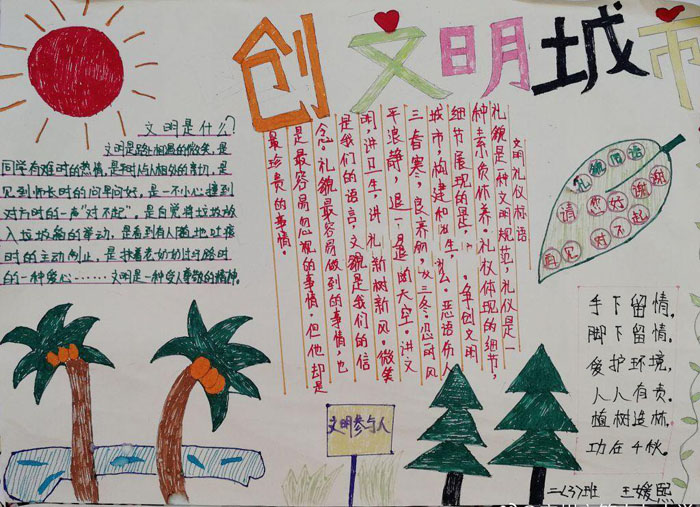 创文明城市
文明是什么?
文明是路上相遇的微笑,是
同学有难时的热情,是和人相处的亲切,是
见到师长时的问早问好,是一不小心撞到
对方时的一声"对不起",是自觉将垃圾放
入垃圾箱的举动,是看到有人随地吐痰
时的主动制止,是扶着老奶奶过马路时
的一种爱心……文明是一种受人尊敬的精神。
文明礼仪标语
礼貌是一种文明规范,礼仪是一
种素质体养。礼仪体现的细节,
细节展现的是
争创文明
城市,构建和
恶语伤人
三春寒,良
平浪静,退一
的天空。讲文
明,讲卫生,讲礼
新树新风。微笑
是我们的语言,文貌是我们的信
念。礼貌最容易做到的事情,也
是最容易忽视的事情。但他却是
最珍贵的事情。
礼貌用语
请 您好 谢谢
再见 对不起
手下留情,
脚下留情,
爱护环境,
人人有责,
植树造林,
功在千秋。
文明参与人
二〈3〉班 王媛熙